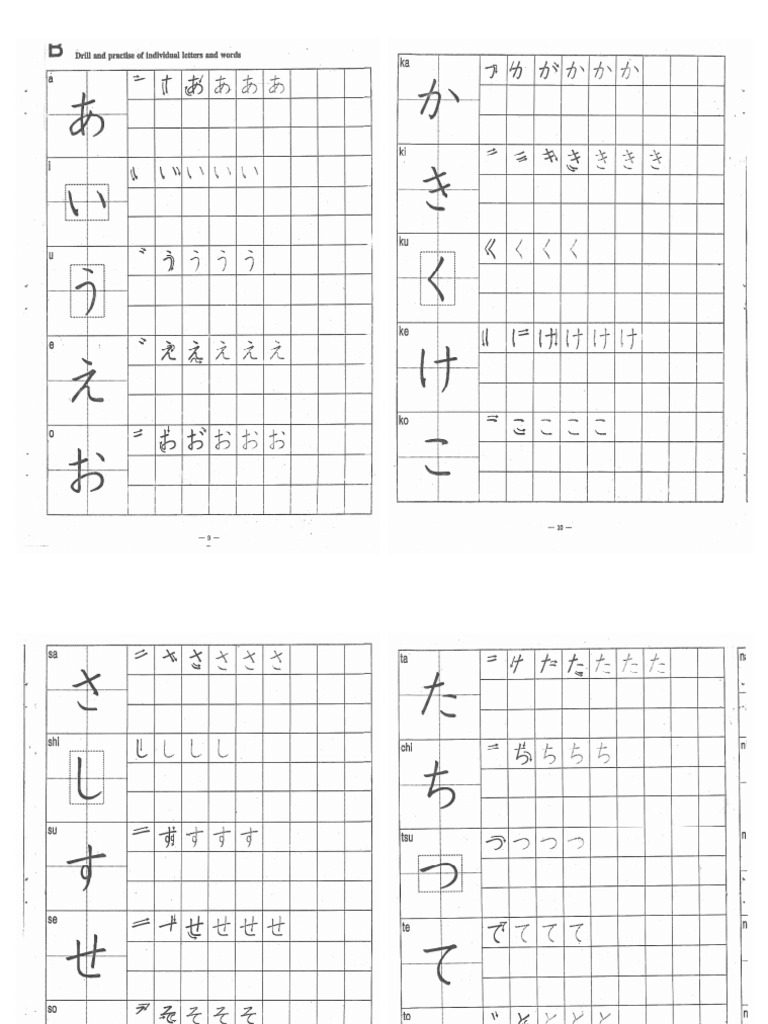 B Drill and practise of individual letters and words
a
あ あ あ あ あ
i
い い い い い
u
う う う う う
e
え え え え え え
o
お お お お お お
— 9 —
ka
か か か か か
ki
き き き き き
ku
く く く く
ke
け け け け け
ko
こ こ こ こ こ
— 10 —
sa
さ さ さ さ さ
shi
し し し し し
su
す す す す す
se
せ せ せ せ せ
so
そ そ そ そ
ta
た た た た た た
chi
ち ち ち ち ち
tsu
つ つ つ つ
te
て て て て
to
と と と と